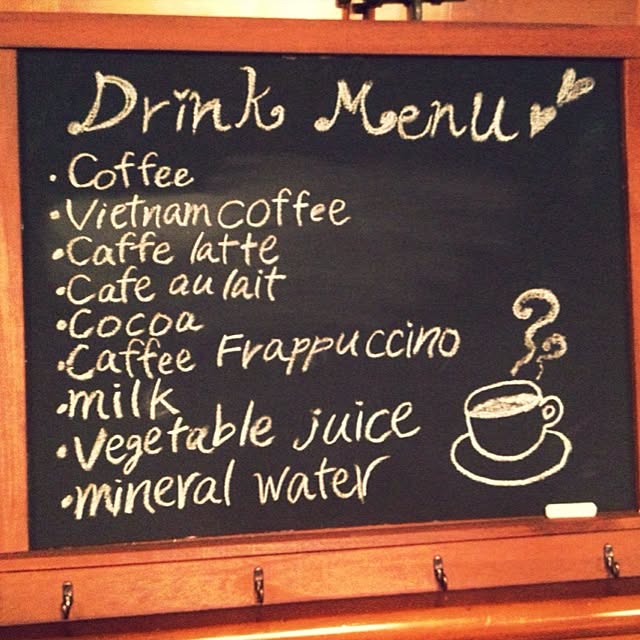 Drink Menu
· Coffee
· Vietnam coffee
· Caffe latte
· Cafe au lait
· Cocoa
· Caffee Frappuccino
· milk
· Vegetable juice
· mineral water